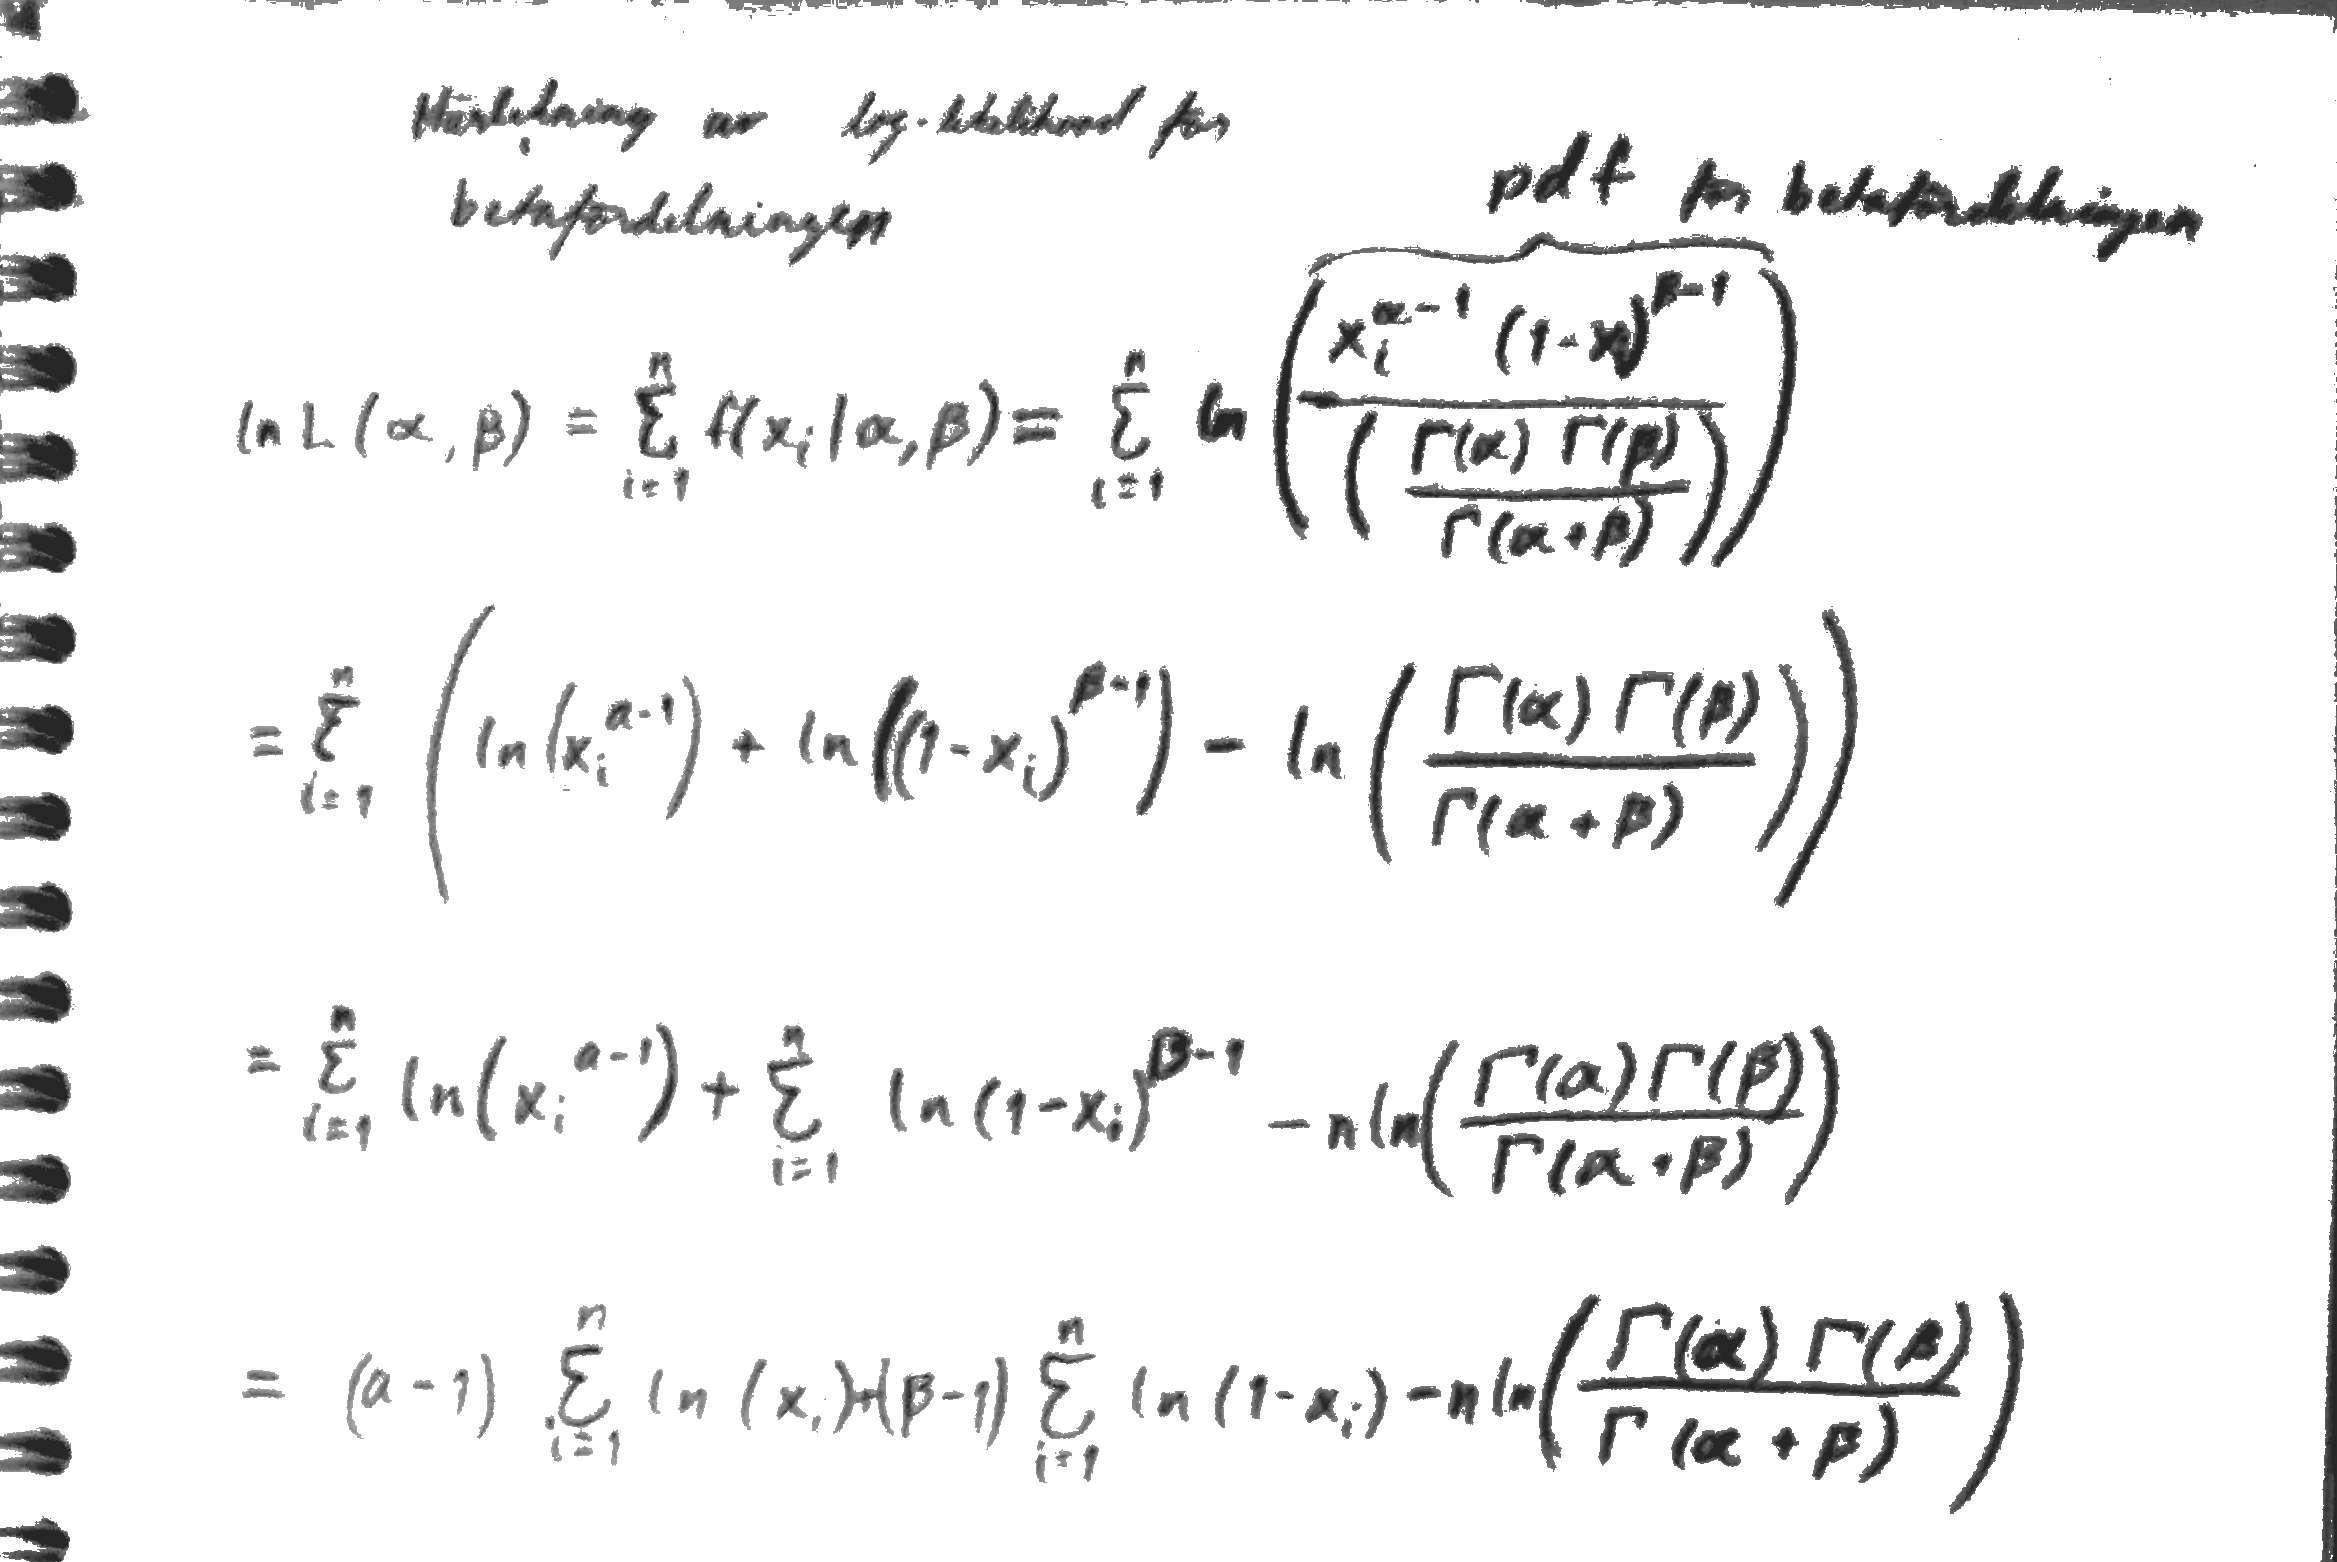 Härledning av log-likelihood för
betafördelningen
pdf för betafördelningen
ln L(α, β) = Σ_{i=1}^{n} f(x_i | α, β) = Σ_{i=1}^{n} ln( (x_i^{α-1} (1-x_i)^{β-1}) / ( (Γ(α) Γ(β)) / Γ(α+β) ) )
= Σ_{i=1}^{n} ( ln(x_i^{a-1}) + ln((1-x_i)^{β-1}) - ln( (Γ(α) Γ(β)) / Γ(α+β) ) )
= Σ_{i=1}^{n} ln(x_i^{a-1}) + Σ_{i=1}^{n} ln(1-x_i)^{β-1} - n ln( (Γ(a) Γ(β)) / Γ(α+β) )
= (a-1) Σ_{i=1}^{n} ln(x_i) + (β-1) Σ_{i=1}^{n} ln(1-x_i) - n ln( (Γ(α) Γ(β)) / Γ(α+β) )